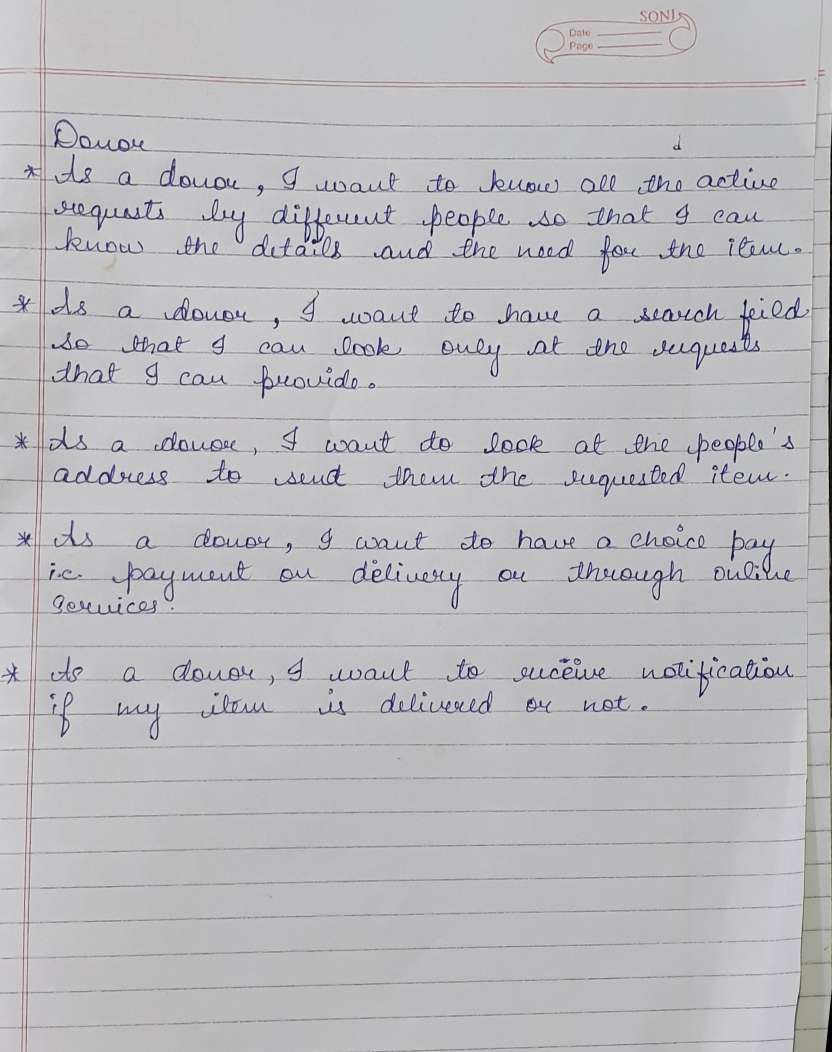 SONI
Date
Page
Donor
d
* As a donor, I want to know all the active
requests by different people so that I can
know the details and the need for the item.
* As a donor, I want to have a search feild
so that I can look only at the requests
that I can provide.
* As a donor, I want to look at the people's
address to send them the requested item.
* As a donor, I want to have a choice pay
i.e. payment on delivery or through online
services.
* As a donor, I want to receive notification
if my item is delivered or not.